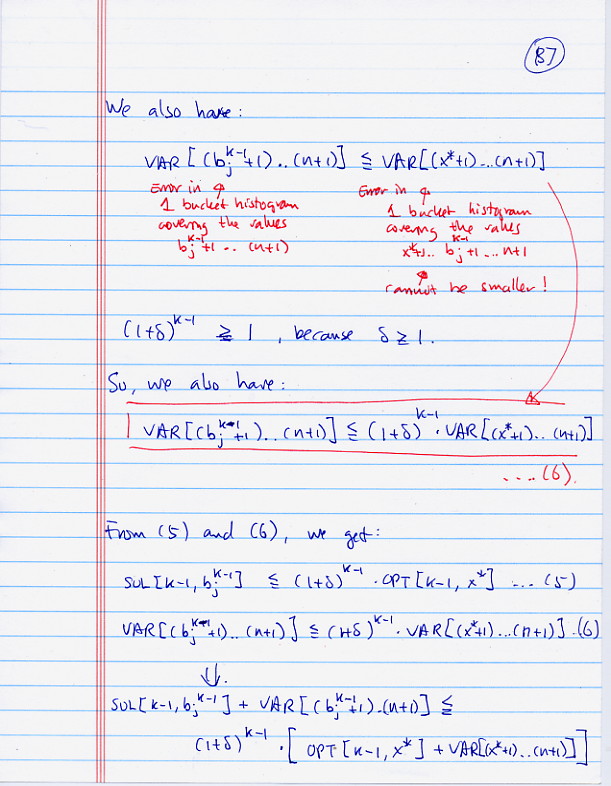 B7
We also have:
VAR[(b_j^{k-1}+1)..(n+1)] ≦ VAR[(x*+1)...(n+1)]
Error in
1 bucket histogram
covering the values
b_j^{k-1}+1 .. (n+1)
Error in
1 bucket histogram
covering the values
x*+1.. b_j^{k-1}+1 ... n+1
cannot be smaller!
(1+δ)^{k-1} ≧ 1 , because δ ≥ 1.
So, we also have:
VAR[(b_j^{k-1}+1)..(n+1)] ≦ (1+δ)^{k-1} · VAR[(x*+1)..(n+1)]
....(6).
From (5) and (6), we get:
SOL[k-1, b_j^{k-1}] ≤ (1+δ)^{k-1} · OPT[k-1, x*] ... (5)
VAR[(b_j^{k-1}+1)..(n+1)] ≦ (1+δ)^{k-1} · VAR[(x*+1)...(n+1)] .(6)
⇓.
SOL[k-1, b_j^{k-1}] + VAR[(b_j^{k-1}+1)..(n+1)] ≦
(1+δ)^{k-1} · [ OPT[k-1, x*] + VAR[(x*+1)..(n+1)] ]